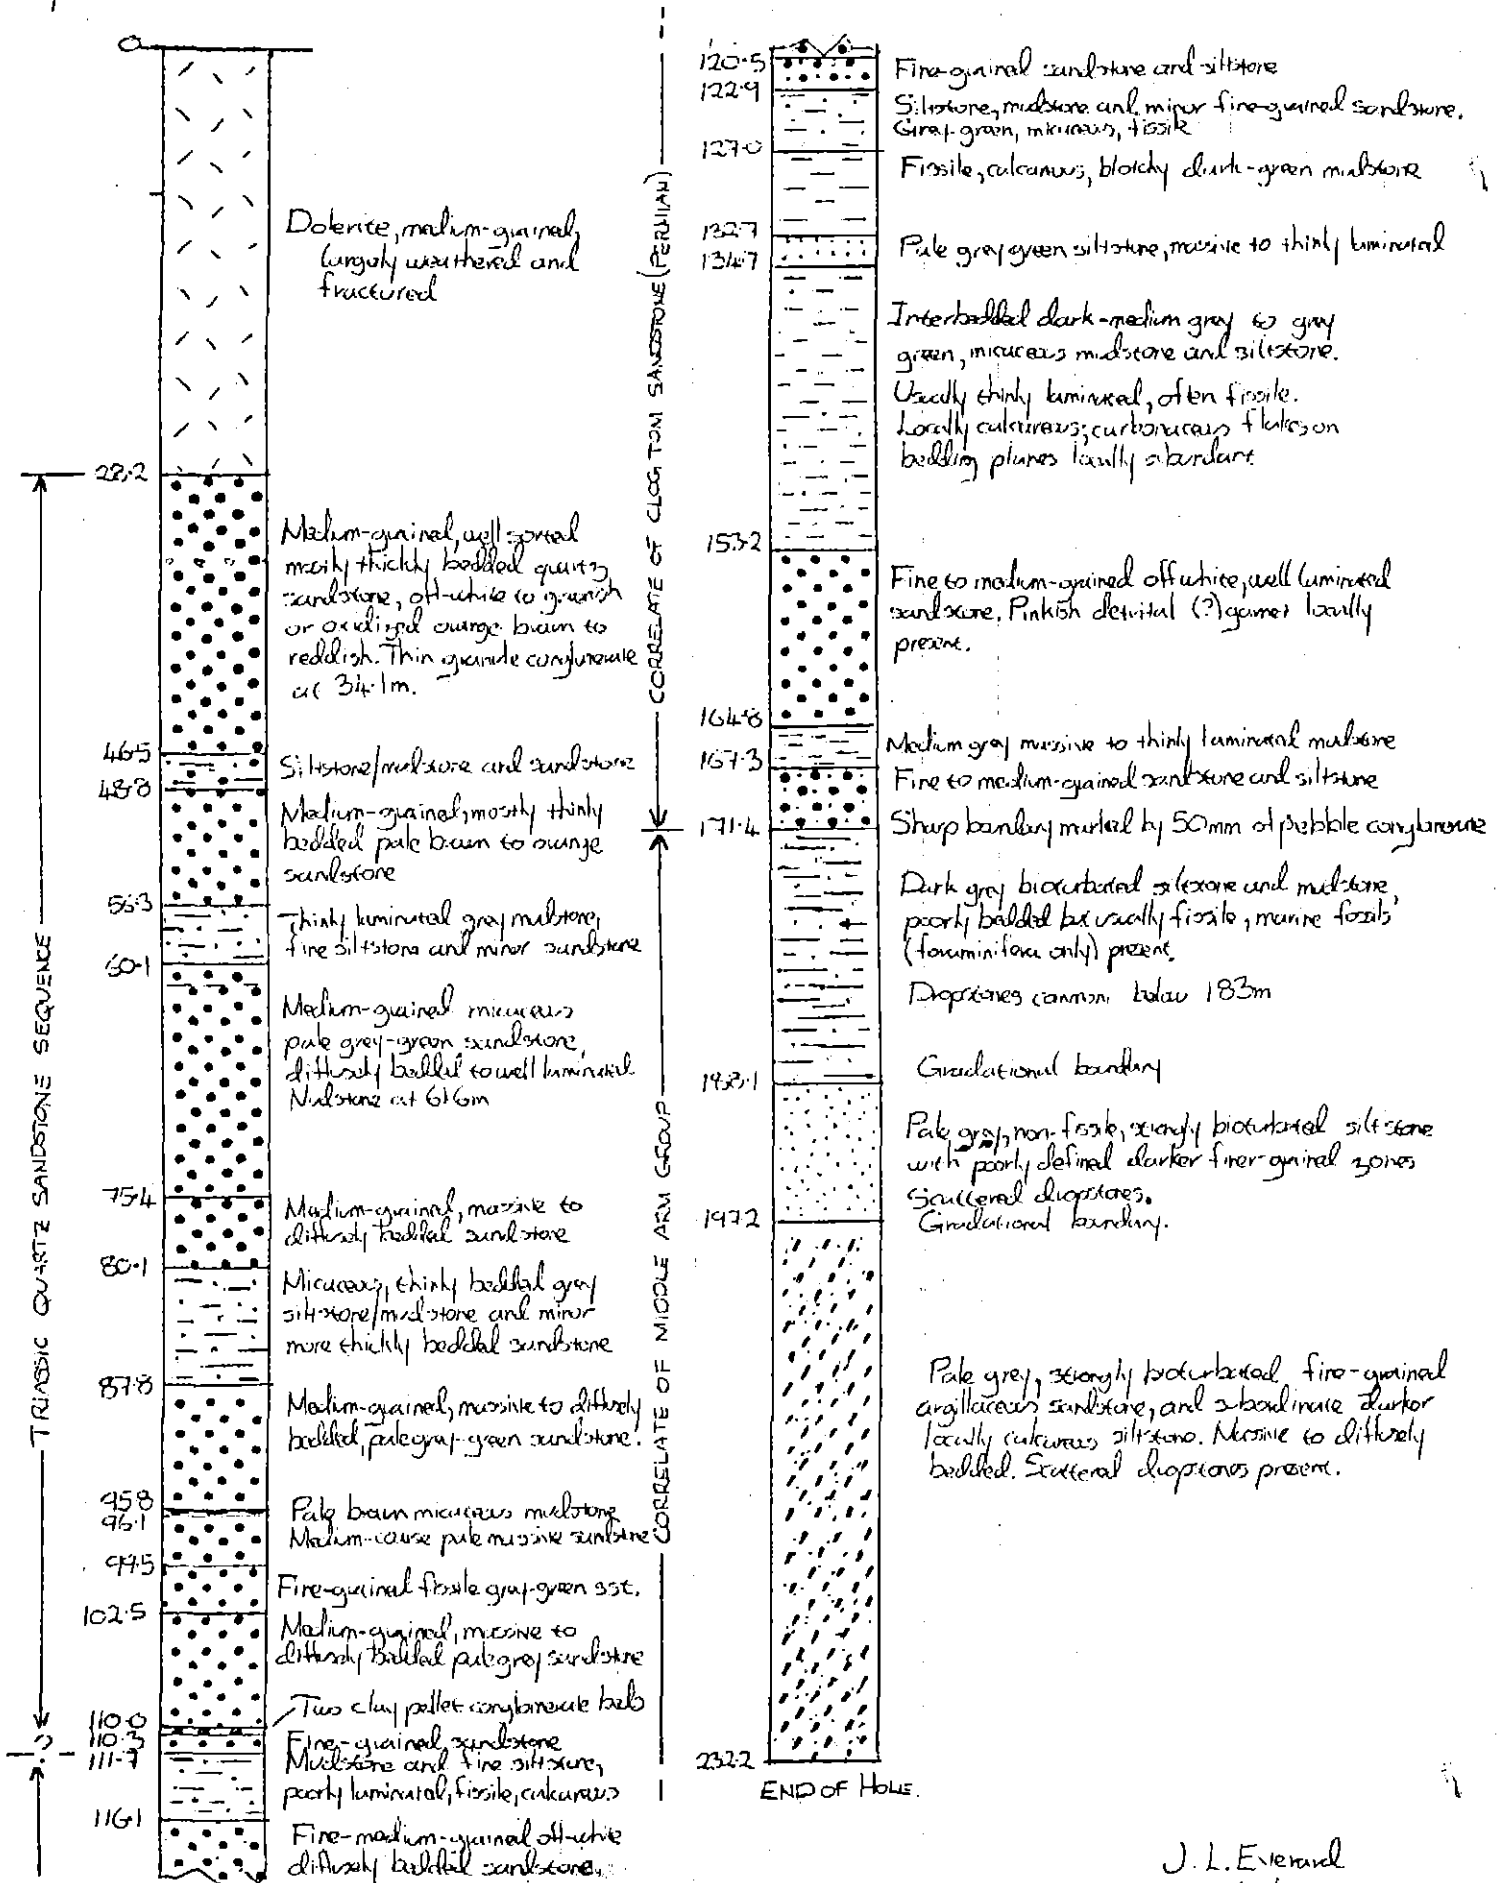 0
Dolerite, medium-grained,
largely weathered and
fractured
28.2
Medium-grained, well sorted
mostly thickly bedded quartz
sandstone, off-white to greenish
or oxidized orange brown to
reddish. Thin granule conglomerate
at 34.1m.
46.5
Siltstone/mudstone and sandstone
48.8
Medium-grained, mostly thinly
bedded pale brown to orange
sandstone
56.3
Thinly laminated grey mudstone,
fine siltstone and minor sandstone
60.1
Medium-grained micaceous
pale grey-green sandstone,
diffusely bedded to well laminated
Mudstone at 61.6m
75.4
Medium-grained, massive to
diffusely bedded sandstone
80.1
Micaceous, thinly bedded grey
siltstone/mudstone and minor
more thickly bedded sandstone
87.8
Medium-grained, massive to diffusely
bedded, pale grey-green sandstone.
95.8
Pale brown micaceous mudstone
96.1
Medium-coarse pale massive sandstone
99.5
Fine-grained fissile grey-green sst.
102.5
Medium-grained, massive to
diffusely bedded pale grey sandstone
Two clay pellet conglomerate beds
110.0
110.3
Fine-grained sandstone
?
111.7
Mudstone and fine siltstone,
poorly laminated, fissile, calcareous
116.1
Fine-medium-grained off-white
diffusely bedded sandstone,
TRIASSIC QUARTZ SANDSTONE SEQUENCE
CORRELATE OF CLOG TOM SANDSTONE (PERMIAN)
CORRELATE OF MIDDLE ARM GROUP
120.5
Fine-grained sandstone and siltstone
122.9
Siltstone, mudstone and minor fine-grained sandstone.
Grey-green, micaceous, fissile
127.0
Fissile, calcareous, blotchy dark-green mudstone
132.7
Pale grey green siltstone, massive to thinly laminated
134.7
Interbedded dark-medium grey to grey
green, micaceous mudstone and siltstone.
Usually thinly laminated, often fissile.
Locally calcareous; carbonaceous flakes on
bedding planes locally abundant.
153.2
Fine to medium-grained off white, well laminated
sandstone. Pinkish detrital (?) garnet locally
present.
164.8
Medium grey massive to thinly laminated mudstone
167.3
Fine to medium-grained sandstone and siltstone
171.4
Sharp boundary marked by 50mm of pebble conglomerate
Dark grey bioturbated siltstone and mudstone,
poorly bedded but usually fissile, marine fossils
(foraminifera only) present.
Dropstones common below 183m
Gradational boundary
Pale grey, non-fissile, strongly bioturbated siltstone
with poorly defined darker finer-grained zones
Scattered dropstones.
197.2
Gradational boundary.
Pale grey, strongly bioturbated fine-grained
argillaceous sandstone, and subordinate darker
locally calcareous siltstone. Massive to diffusely
bedded. Scattered dropstones present.
232.2
END OF HOLE.
J. L. Everard